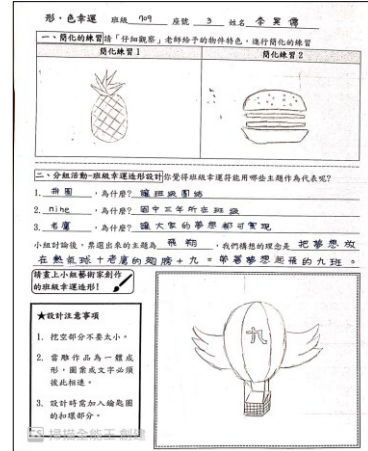 形・色幸運 班級 709 座號 3 姓名 李昊儒
一、簡化的練習 請「仔細觀察」老師給予的物件特色,進行簡化的練習
簡化練習1 簡化練習2
二、分組活動-班級幸運造形設計 你覺得班級幸運符能用哪些主題作為代表呢?
1. 拼圖 ,為什麼? 讓班級團結
2. nine ,為什麼? 國中三年所在班級
3. 老鷹 ,為什麼? 讓大家的夢想都可實現
小組討論後,票選出來的主題為 飛翔 ,我們構想的理念是 把夢想放
在熱氣球+老鷹的翅膀+九。帶著夢想起飛的九班。
請畫上小組藝術家創作
的班級幸運造形!
★設計注意事項
1. 挖空部分不要太小。
2. 當雕作品為一體成
形,圖案或文字必須
彼此相連。
3. 設計時需加入鑰匙圈
的扣環部分。
九
CS 掃描全能王 創建